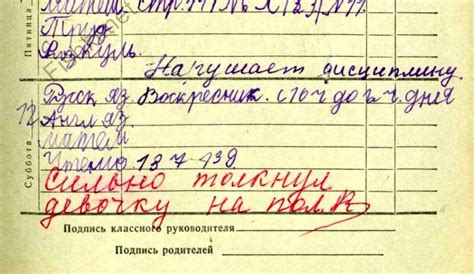 Матем. стр. 111 №
Труд
Физкуль
Нарушает дисциплину.
Пятница
Русск яз. Воскресник. с 10 ч до 2 ч. дня
12 Англ яз.
матем
Чтение 137-139
Суббота
Сильно толкнул
девочку на пол
Подпись классного руководителя
Подпись родителей